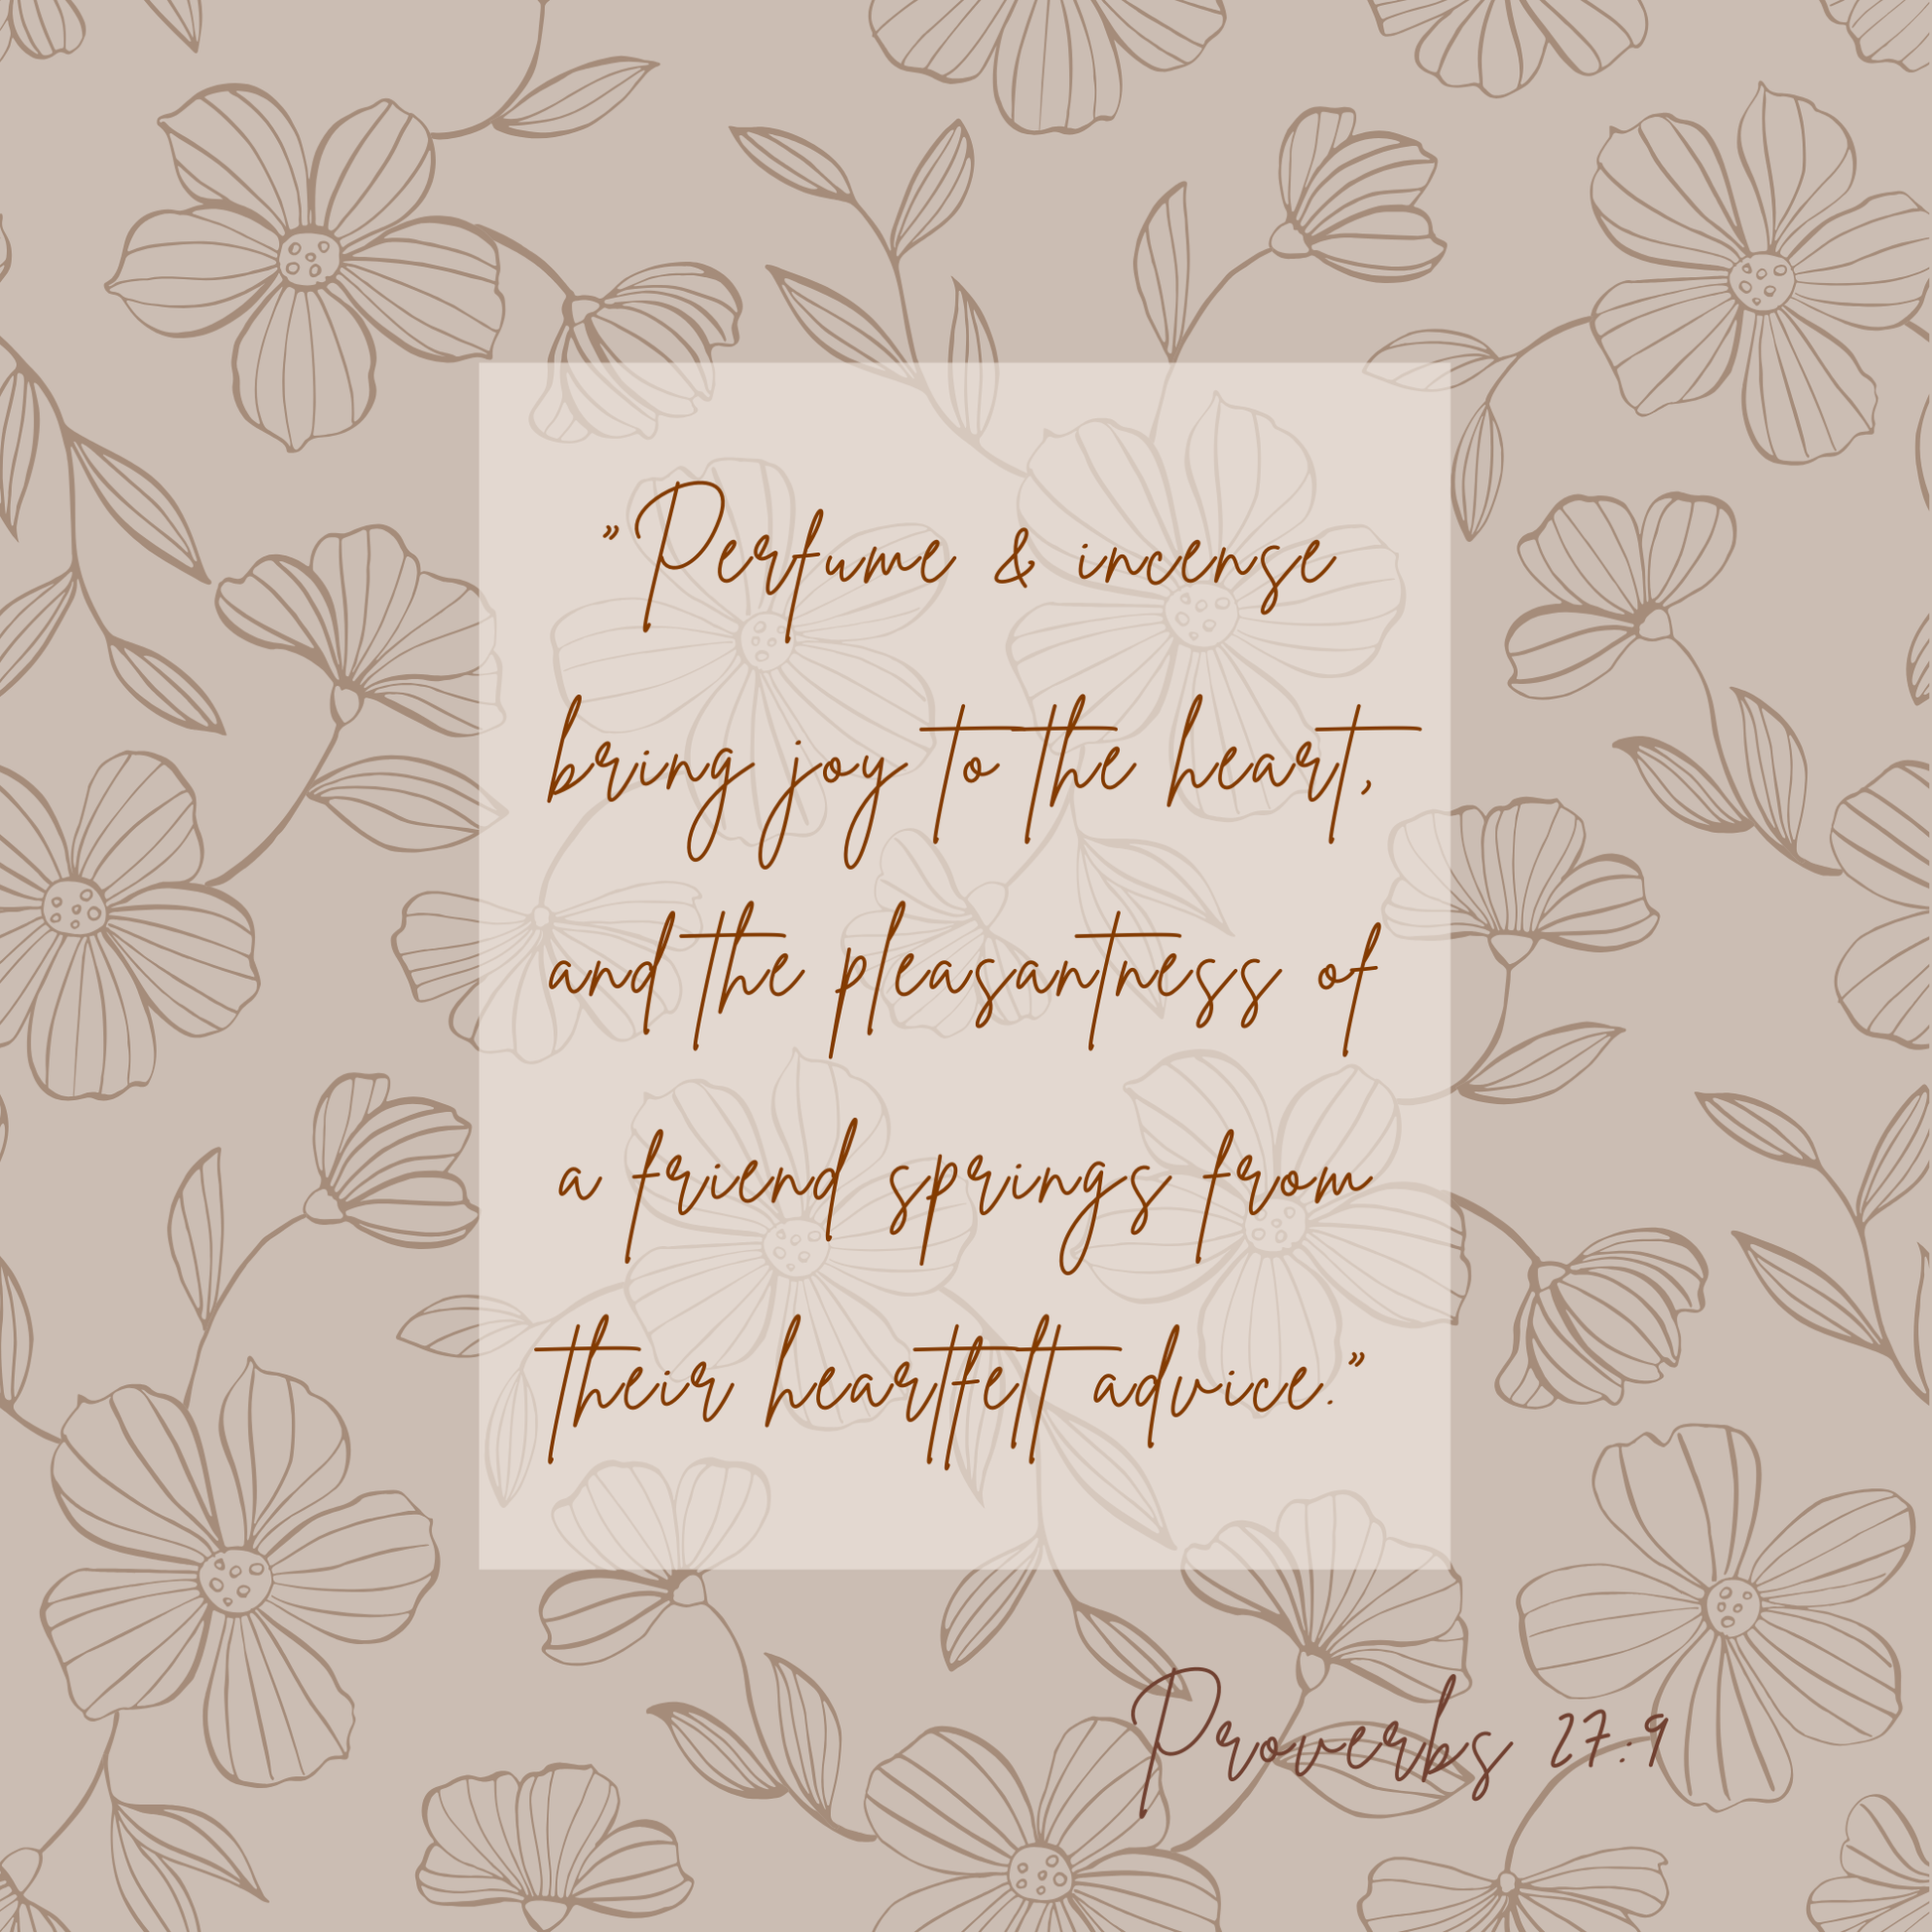 ”Perfume & incense
bring joy to the heart,
and the pleasantness of
a friend springs from
their heartfelt advice.”
Proverbs 27:9